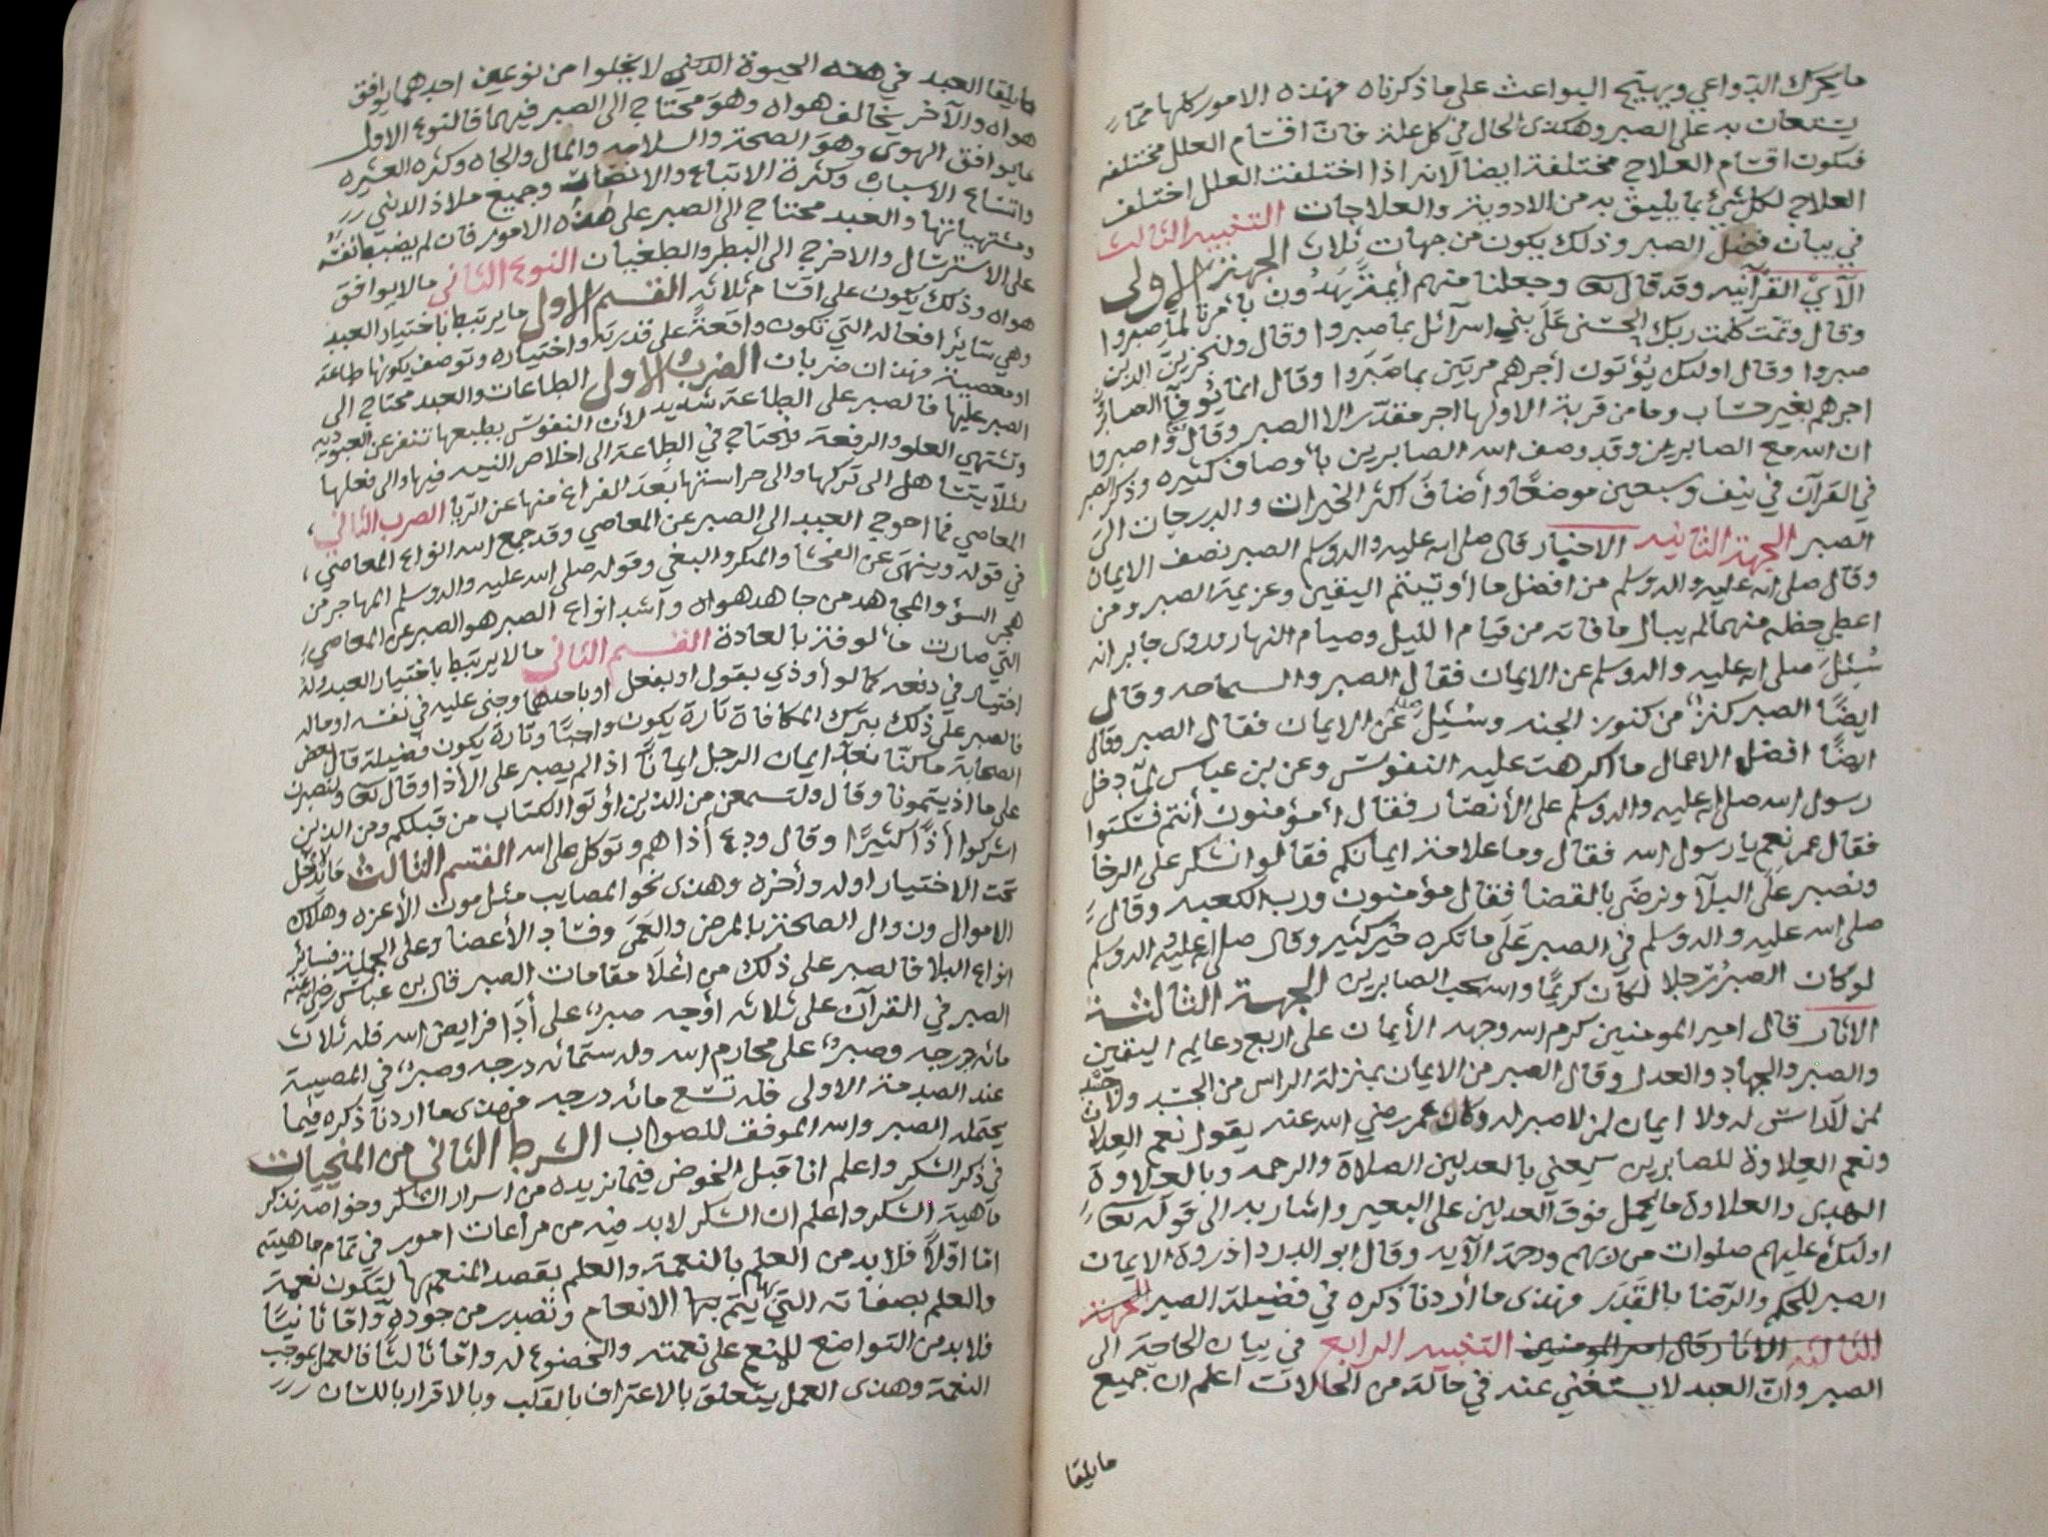 ما يحرك الدواعي ويهيج البواعث على ما ذكرناه فهذه الامور كلها مما
يستعان به على الصبر وهكذى الحال في كل علة فان اقسام العلل مختلفه
فتكون اقسام العلاج مختلفة ايضا لانه اذا اختلفت العلل اختلف
العلاج لكل شيء بما يليق به من الادوية والعلاجات التنبيه الثالث
في بيان فضل الصبر وذلك يكون من جهات ثلاث الجهة الاولى
الآي القرآنيه وقد قال تعا وجعلنا منهم أيمة يهدون بأمرنا لما صبروا
وقال وتمت كلمت ربك الحسنى على بني اسرآئل بما صبروا وقال ولنجزين الذين
صبروا وقال اولئك يؤتون أجرهم مرتين بما صبروا وقال انما يوفى الصابرون
اجرهم بغير حساب وما من قربة الا ولها اجر مقدر الا الصبر وقال واصبروا
ان الله مع الصابرين وقد وصف الله الصابرين بأوصاف كثيره وذكر الصبر
في القرآن في نيف وسبعين موضعًا وأضاف اكثر الخيرات والدرجات الى
الصبر الجهة الثانيه الاخبار قال صلى الله عليه واله وسلم الصبر نصف الايمان
وقال صلى الله عليه واله وسلم من افضل ما أوتيتم اليقين وعزيمة الصبر ومن
اعطي حظه منهما لم يبال ما فاته من قيام الليل وصيام النهار وروى جابر انه
سُئِلَ صلى الله عليه واله وسلم عن الايمان فقال الصبر والسماحه وقال
ايضًا الصبر كنزٌ من كنوز الجنه وسُئِلَ عن الايمان فقال الصبر وقال
ايضًا افضل الاعمال ما اكرهت عليه النفوس وعن بن عباس لما دخل
رسول الله صلى الله عليه واله وسلم على الأنصار فقال أمؤمنون أنتم فسكتوا
فقال عمر نعم يا رسول الله فقال وما علامة ايمانكم فقالوا نشكر على الرخا
ونصبر على البلآ ونرضى بالقضا فقال مؤمنون ورب الكعبه وقال
صلى الله عليه واله وسلم في الصبر على ما تكره خير كثير وقال صلى الله عليه واله وسلم
لو كان الصبرُ رجلا لكان كريمًا والله يحب الصابرين الجهة الثالثة
الاثار قال امير المومنين كرم الله وجهه الأيمان على اربع دعايم اليقين
والصبر والجهاد والعدل وقال الصبر من الايمان بمنزلة الراس من الجسد ولا جسد
لمن لا راس له ولا ايمان لمن لا صبر له وكان عمر رضي الله عنه يقول نعم العدلان
ونعم العلاوة للصابرين يعني بالعدلين الصلاة والرحمه وبالعلاوة
الهدى والعلاوة ما يحمل فوق العدلين على البعير واشار به الى قوله تعا
اولئك عليهم صلوات من ربهم ورحمة الآيه وقال ابو الدردا ذروة الايمان
الصبر للحكم والرضا بالقدر فهذى ما أردنا ذكره في فضيلة الصبر الجهة
الثالثة الاثار قال امير المومنين التنبيه الرابع في بيان الحاجة الى
الصبر وان العبد لا يستغني عنه في حالة من الحالات اعلم ان جميع
ما يلقا
ما يلقا العبد في هذه الحيوة الدنيى لا يخلوا من نوعين احدهما يوافق
هواه والآخر يخالف هواه وهو محتاج الى الصبر فيهما فالنوع الاول
ما يوافق الهوى وهو الصحة والسلامه والمال والجاه وكثره العشيره
واتساع الاسباب وكثرة الاتباع والانصار وجميع ملاذ الدنيى
ومشتهياتها والعبد محتاج الى الصبر على هذه الامور فان لم يضبط نفسه
على الاسترسال والا خرج الى البطر والطغيان النوع الثاني ما لا يوافق
هواه وذلك يكون على اقسام ثلاثه القسم الاول ما يرتبط باختيار العبد
وهي سائر افعاله التي تكون واقعة على قدرته واختياره وتوصف بكونها طاعة
او معصية فهذان ضربان الضرب الاول الطاعات والعبد محتاج الى
الصبر عليها فالصبر على الطاعة شديد لأن النفوس بطبعها تنفر عن العبوديه
وتشتهي العلو والرفعة ويحتاج في الطاعة الى اخلاص النيه فيها والى فعلها
لئلا يتساهل الى تركها والى حراستها بعد الفراغ منها عن الريا الضرب الثاني
المعاصي فما احوج العبد الى الصبر عن المعاصي وقد جمع الله انواع المعاصي
في قوله وينهى عن الفحشا والمنكر والبغي وقوله صلى الله عليه واله وسلم المهاجر من
هجر السؤ والمجاهد من جاهد هواه واشد انواع الصبر هو الصبر عن المعاصي
التي صارت مألوفة بالعادة القسم الثاني ما لا يرتبط باختيار العبد وله
اختيار في دفعه كما لو أوذي بقول او بفعل او وجنى عليه في نفسه او ماله
فالصبر على ذلك بترك المكافاة تارة يكون واجبًا وتارة يكون فضيلة قال بعض
الصحابة ما كنا نعد ايمان الرجل ايمانًا اذا لم يصبر على الأذا وقال تعا ولنصبرن
على ما اذيتمونا وقال ولتسمعن من الذين اؤتوا الكتاب من قبلكم ومن الذين
اشركوا أذًا كثيرًا وقال ودع أذاهم وتوكل على الله القسم الثالث ما لا يدخل
تحت الاختيار اوله وأخره وهذى نحو المصايب مثل موت الأعزه وهلاك
الاموال وزوال الصحة بالمرض والعمى وفساد الأعضا وعلى الجملة فسائر
انواع البلا فالصبر على ذلك من أعلا مقامات الصبر قال بن عباس رضي الله عنه
الصبر في القرآن على ثلاثه أوجه صبرٌ على أدا فرايض الله فله ثلاث
مائه درجه وصبرٌ على محارم الله وله ستمائه درجه وصبرٌ في المصيبة
عند الصدمة الاولى فله تسع مائه درجه فهذى ما اردنا ذكره فيما
يحتمله الصبر والله الموفق للصواب الشرط الثاني من المنجيات
في ذكر الشكر واعلم انا قبل الخوض فيما نريده من اسرار الشكر وخواصه نذكر
ماهية الشكر واعلم ان الشكر لا بد فيه من مراعات امور في تمام ماهيته
اما اولًا فلا بد من العلم بالنعمة والعلم بقصد المنعم بها لتكون نعمة
والعلم بصفاته التي يتم بها الانعام وتصدر من جوده وأما ثانيًا
فلا بد من التواضع للمنعم على نعمته والخضوع له وأما ثالثًا فالعمل بموجب
النعمة وهذى العمل يتعلق بالاعتراف بالقلب وبالاقرار باللسان